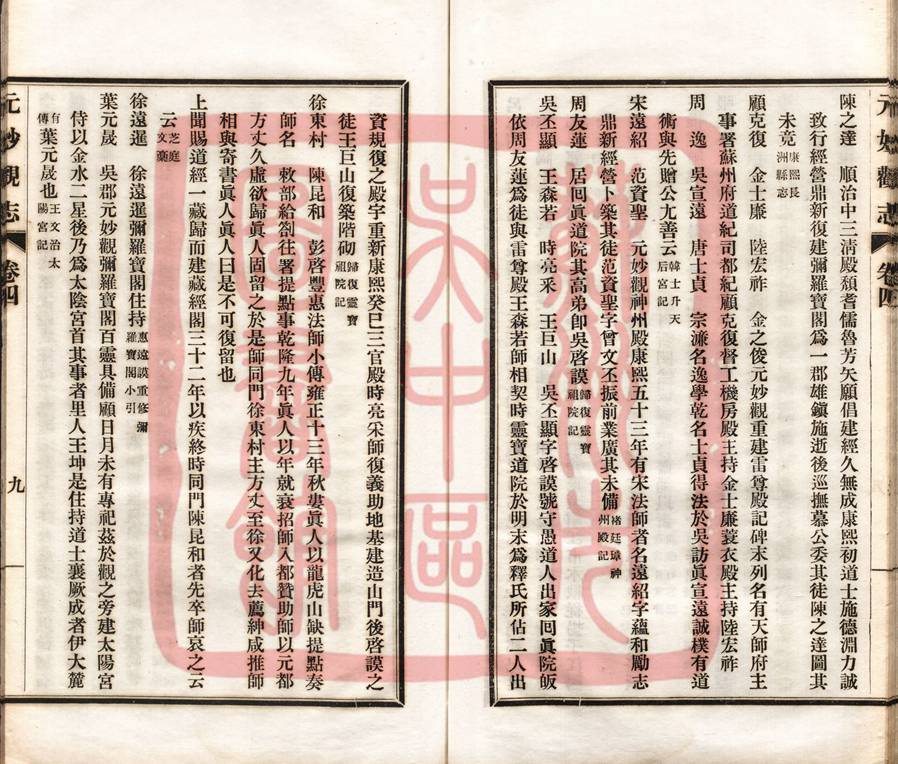 陳之達　順治中三清殿頹耆儒魯芳矢願倡建經久無成康熙初道士施德淵力誠
致行經營鼎新復建彌羅寶閣爲一郡雄鎮施逝後巡撫慕公委其徒陳之達圖其
未竟康熙長洲縣志
顧克復　金士廉　陸宏祚　金之俊元妙觀重建雷尊殿記碑末列名有天師府主
事署蘇州府道紀司都紀顧克復督工機房殿主持金士廉蓑衣殿主持陸宏祚
周　逸　吳宣遠　唐士貞　宗濂名逸學乾名士貞得法於吳訪眞宣遠誠樸有道
術與先贈公尤善云韓士升天后宮記
宋遠紹　范資聖　元妙觀神州殿康熙五十三年有宋法師者名遠紹字蘊和勵志
鼎新經營卜築其徒范資聖字曾文丕振前業廣其未備褚廷璋神州殿記
周友蓮　居囘眞道院其高弟即吳啓謨歸復靈寶祖院記
吳丕顯　王森若　時亮采　王巨山　吳丕顯字啓謨號守愚道人出家囘眞院皈
依周友蓮爲徒與雷尊殿王森若師相契時靈寶道院於明末爲釋氏所佔二人出
資規復之殿宇重新康熙癸巳三官殿時亮采師復義助地基建造山門後啓謨之
徒王巨山復築階砌歸復靈寶祖院記
徐東村　陳昆和　彭啓豐惠法師小傳雍正十三年秋婁眞人以龍虎山缺提點奏
師名　敕部給劄往署提點事乾隆九年眞人以年就衰招師入都贊助師以元都
方丈久虛欲歸眞人固留之於是師同門徐東村主方丈至徐又化去薦紳咸推師
相與寄書眞人眞人曰是不可復留也
上聞賜道經一藏歸而建藏經閣三十二年以疾終時同門陳昆和者先卒師哀之云
云芝庭文藁
徐遠暹　徐遠暹彌羅寶閣住持惠遠謨重修彌羅寶閣小引
葉元晟　吳郡元妙觀彌羅寶閣百靈具備顧日月未有專祀茲於觀之旁建太陽宮
侍以金水二星後乃爲太陰宮首其事者里人王坤是住持道士襄厥成者伊大麓
有葉元晟也王文治太陽宮記
元妙觀志　卷四
九
吳中區